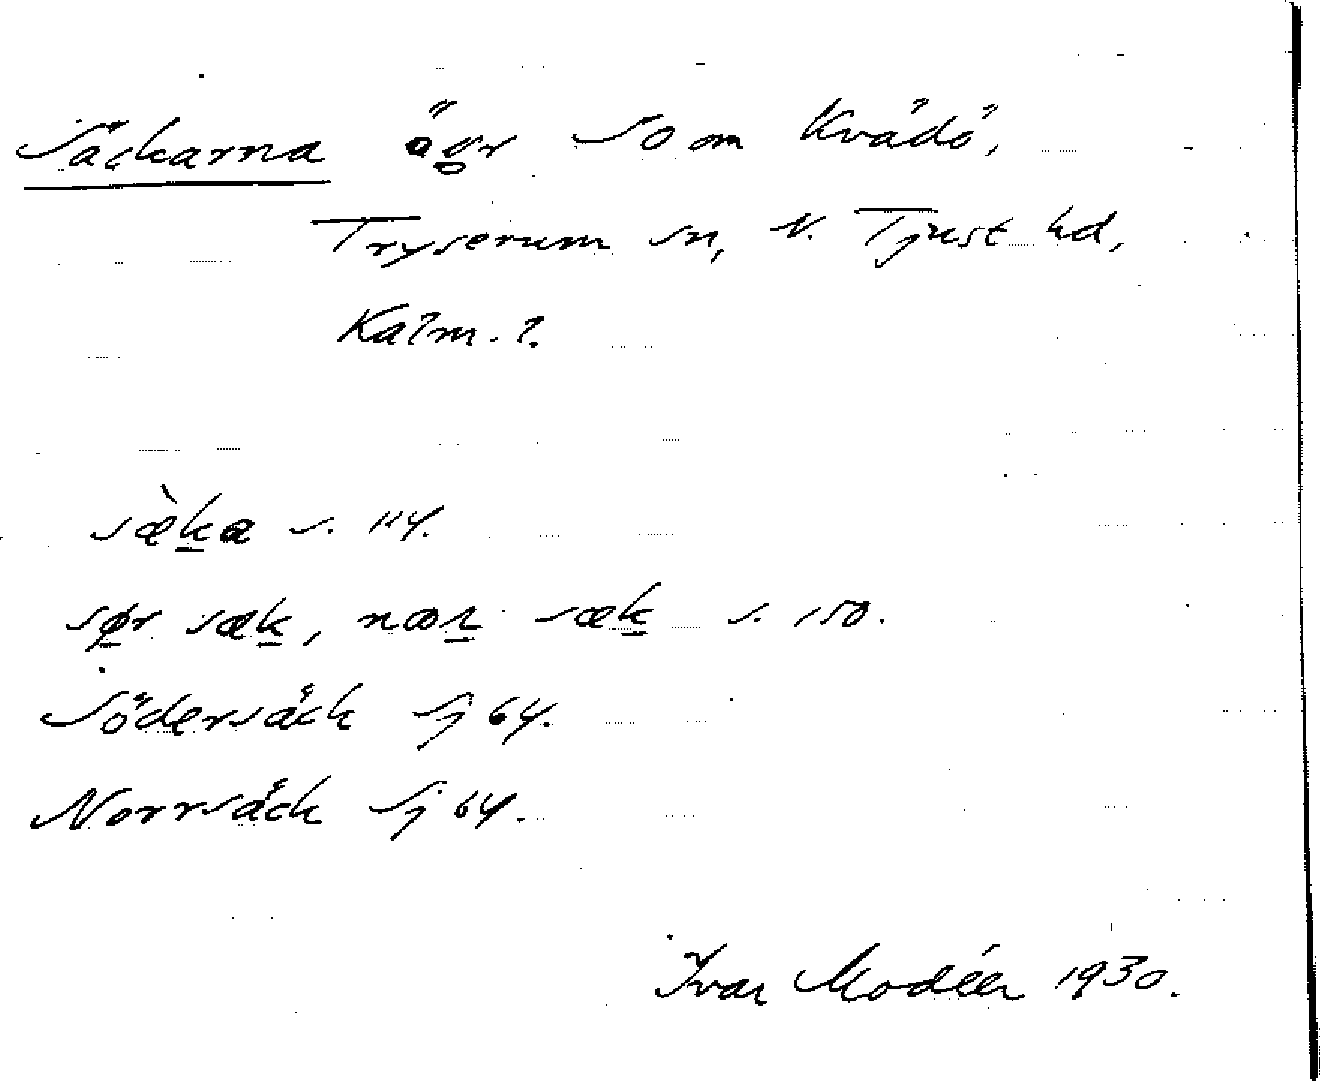 Säckarna ögr SO om Kvädö,
Tryserum sn, N. Tjust hd,
Kalm. l.
sæ̀ka s. 114.
sør sæk, nɷr sæk s. 150.
Södersäck Sj 64.
Norrsäck Sj 64.
Ivar Modéer 1930.